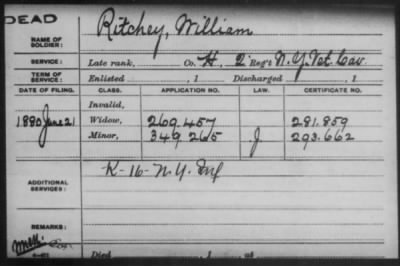 DEAD
NAME OF SOLDIER: Ritchey, William
SERVICE: Late rank, Co. H, 2 Reg't N.Y. Vet. Cav.
TERM OF SERVICE: Enlisted , 1 Discharged , 1
DATE OF FILING. CLASS. APPLICATION NO. LAW. CERTIFICATE NO.
Invalid,
1880 June 21 Widow, 269.457 281.859
Minor, 349 265 J 293.662
ADDITIONAL SERVICES: K-16-N.Y. Inf
REMARKS:
Died , 1 , at